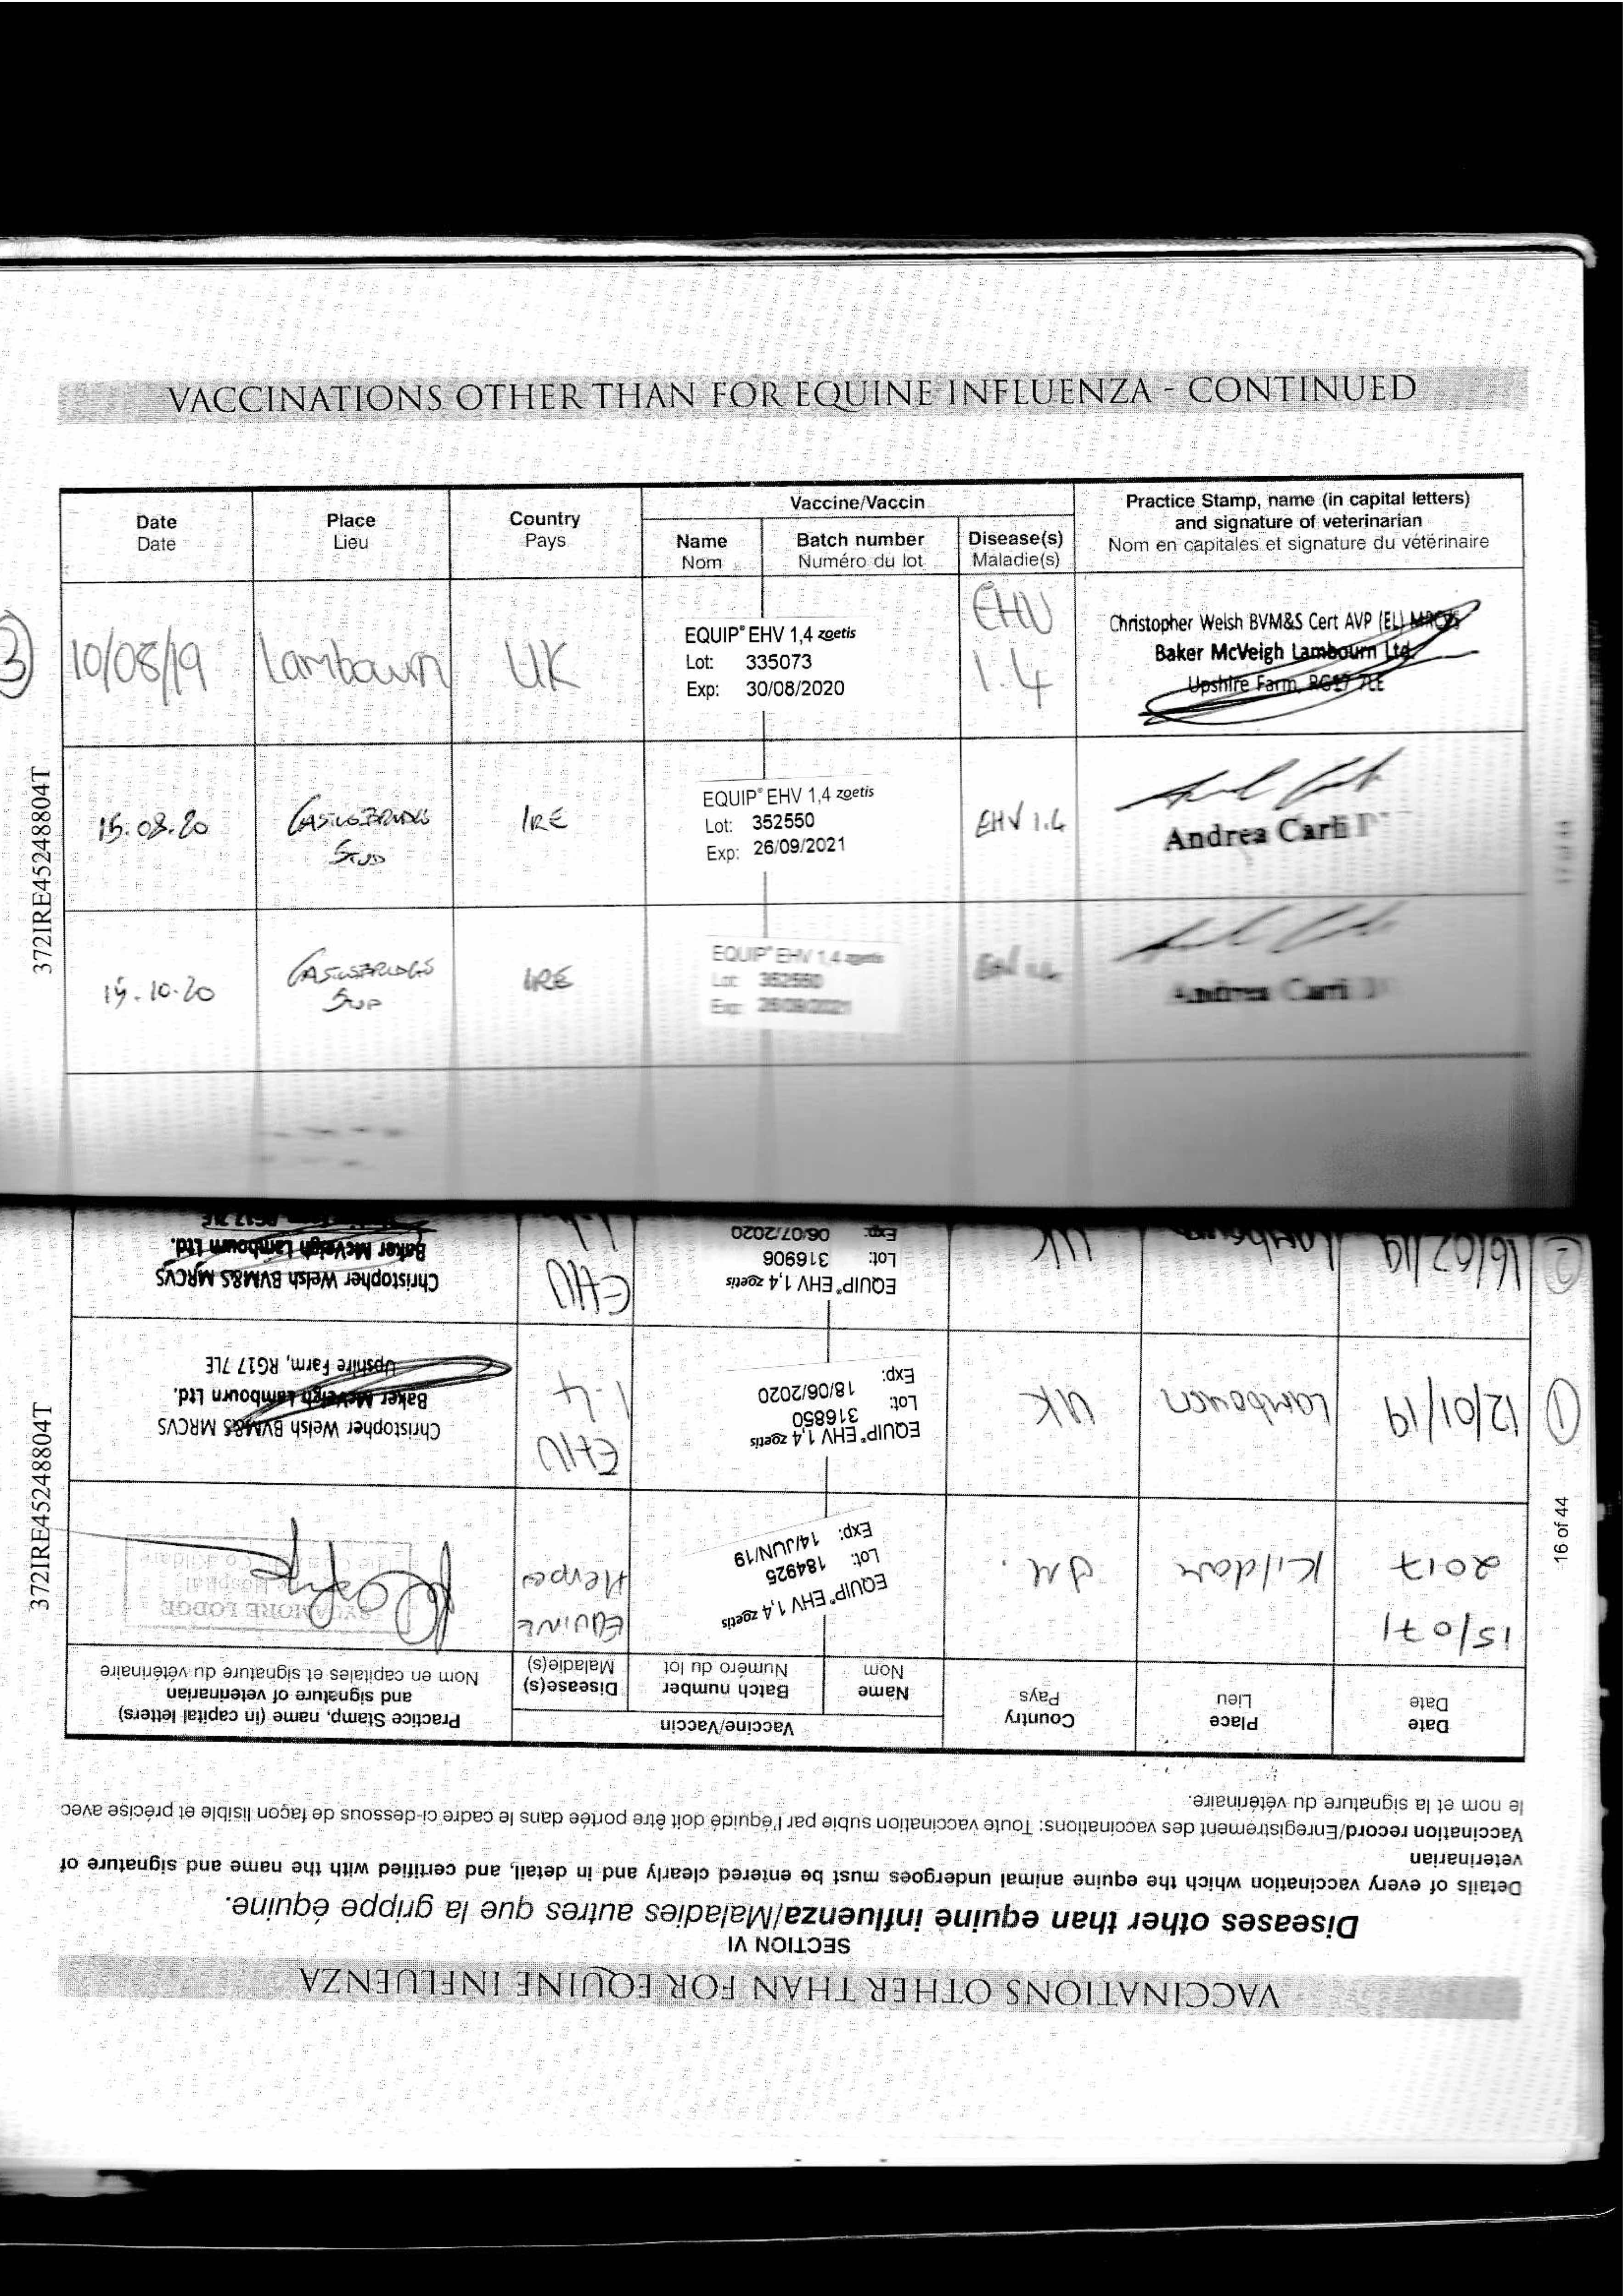 VACCINATIONS OTHER THAN FOR EQUINE INFLUENZA - CONTINUED
Date
Date
Place
Lieu
Country
Pays
Vaccine/Vaccin
Name
Nom
Batch number
Numéro du lot
Disease(s)
Maladie(s)
Practice Stamp, name (in capital letters)
and signature of veterinarian
Nom en capitales et signature du vétérinaire
3
10/08/19
Lambourn
UK
EQUIP® EHV 1,4 zoetis
Lot: 335073
Exp: 30/08/2020
EHV
1.4
Christopher Welsh BVM&S Cert AVP (EL) MRCVS
Baker McVeigh Lambourn Ltd.
Upshire Farm, RG17 7LE
15.08.20
Stud
IRE
EQUIP® EHV 1,4 zoetis
Lot: 352550
Exp: 26/09/2021
EHV 1.4
Andrea Carli
15.10.20
IRE
EQUIP® EHV 1,4 zoetis
Lot: 352550
Exp: 26/09/2021
EHV 1.4
Andrea Carli
372IRE45248804T
VACCINATIONS OTHER THAN FOR EQUINE INFLUENZA
SECTION VI
Diseases other than equine influenza/Maladies autres que la grippe équine.
Details of every vaccination which the equine animal undergoes must be entered clearly and in detail, and certified with the name and signature of
veterinarian
Vaccination record/Enregistrement des vaccinations: Toute vaccination subie par l'équidé doit être portée dans le cadre ci-dessous de façon lisible et précise avec
le nom et la signature du vétérinaire.
Date
Date
Place
Lieu
Country
Pays
Vaccine/Vaccin
Name
Nom
Batch number
Numéro du lot
Disease(s)
Maladie(s)
Practice Stamp, name (in capital letters)
and signature of veterinarian
Nom en capitales et signature du vétérinaire
15/07/
2017
Kildare
EQUIP® EHV 1,4 zoetis
Lot: 184925
Exp: 14/JUN/19
EQUINE
Herpes
SYCAMORE LODGE
1
12/01/19
Lambourn
UK
EQUIP® EHV 1,4 zoetis
Lot: 316850
Exp: 18/06/2020
EHV
1-4
Christopher Welsh BVM&S MRCVS
Baker McVeigh Lambourn Ltd.
Upshire Farm, RG17 7LE
2
16/02/19
Lambourn
UK
EQUIP® EHV 1,4 zoetis
Lot: 316906
Exp: 06/07/2020
EHV
Christopher Welsh BVM&S MRCVS
Baker McVeigh Lambourn Ltd.
16 of 44
372IRE45248804T